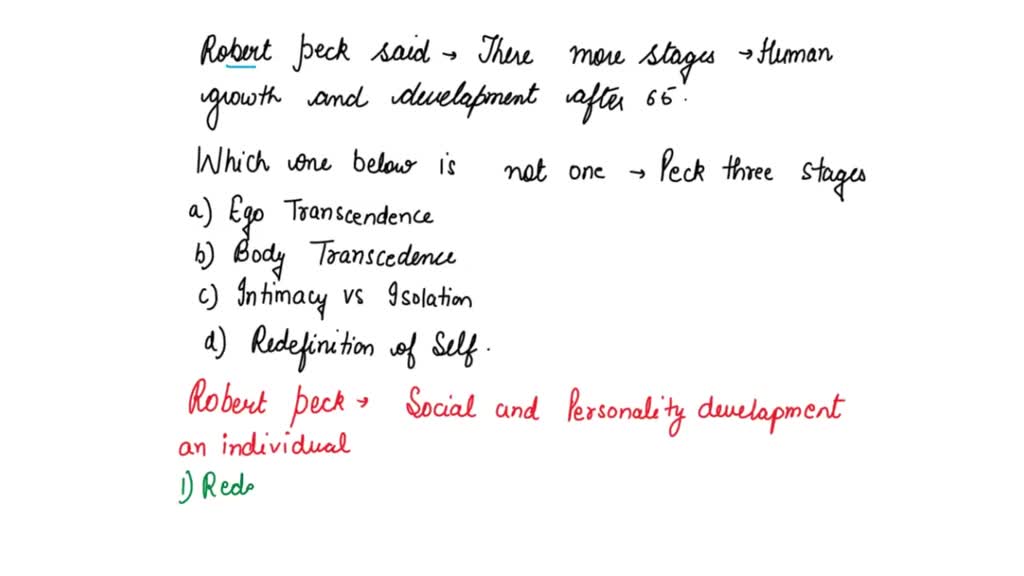 Robert peck said → There more stages → Human
growth and development after 65.
Which one below is not one → Peck three stages
a) Ego Transcendence
b) Body Transcedence
c) Intimacy vs Isolation
d) Redefinition of Self.
Robert peck → Social and Personality development
an individual
1) Rede